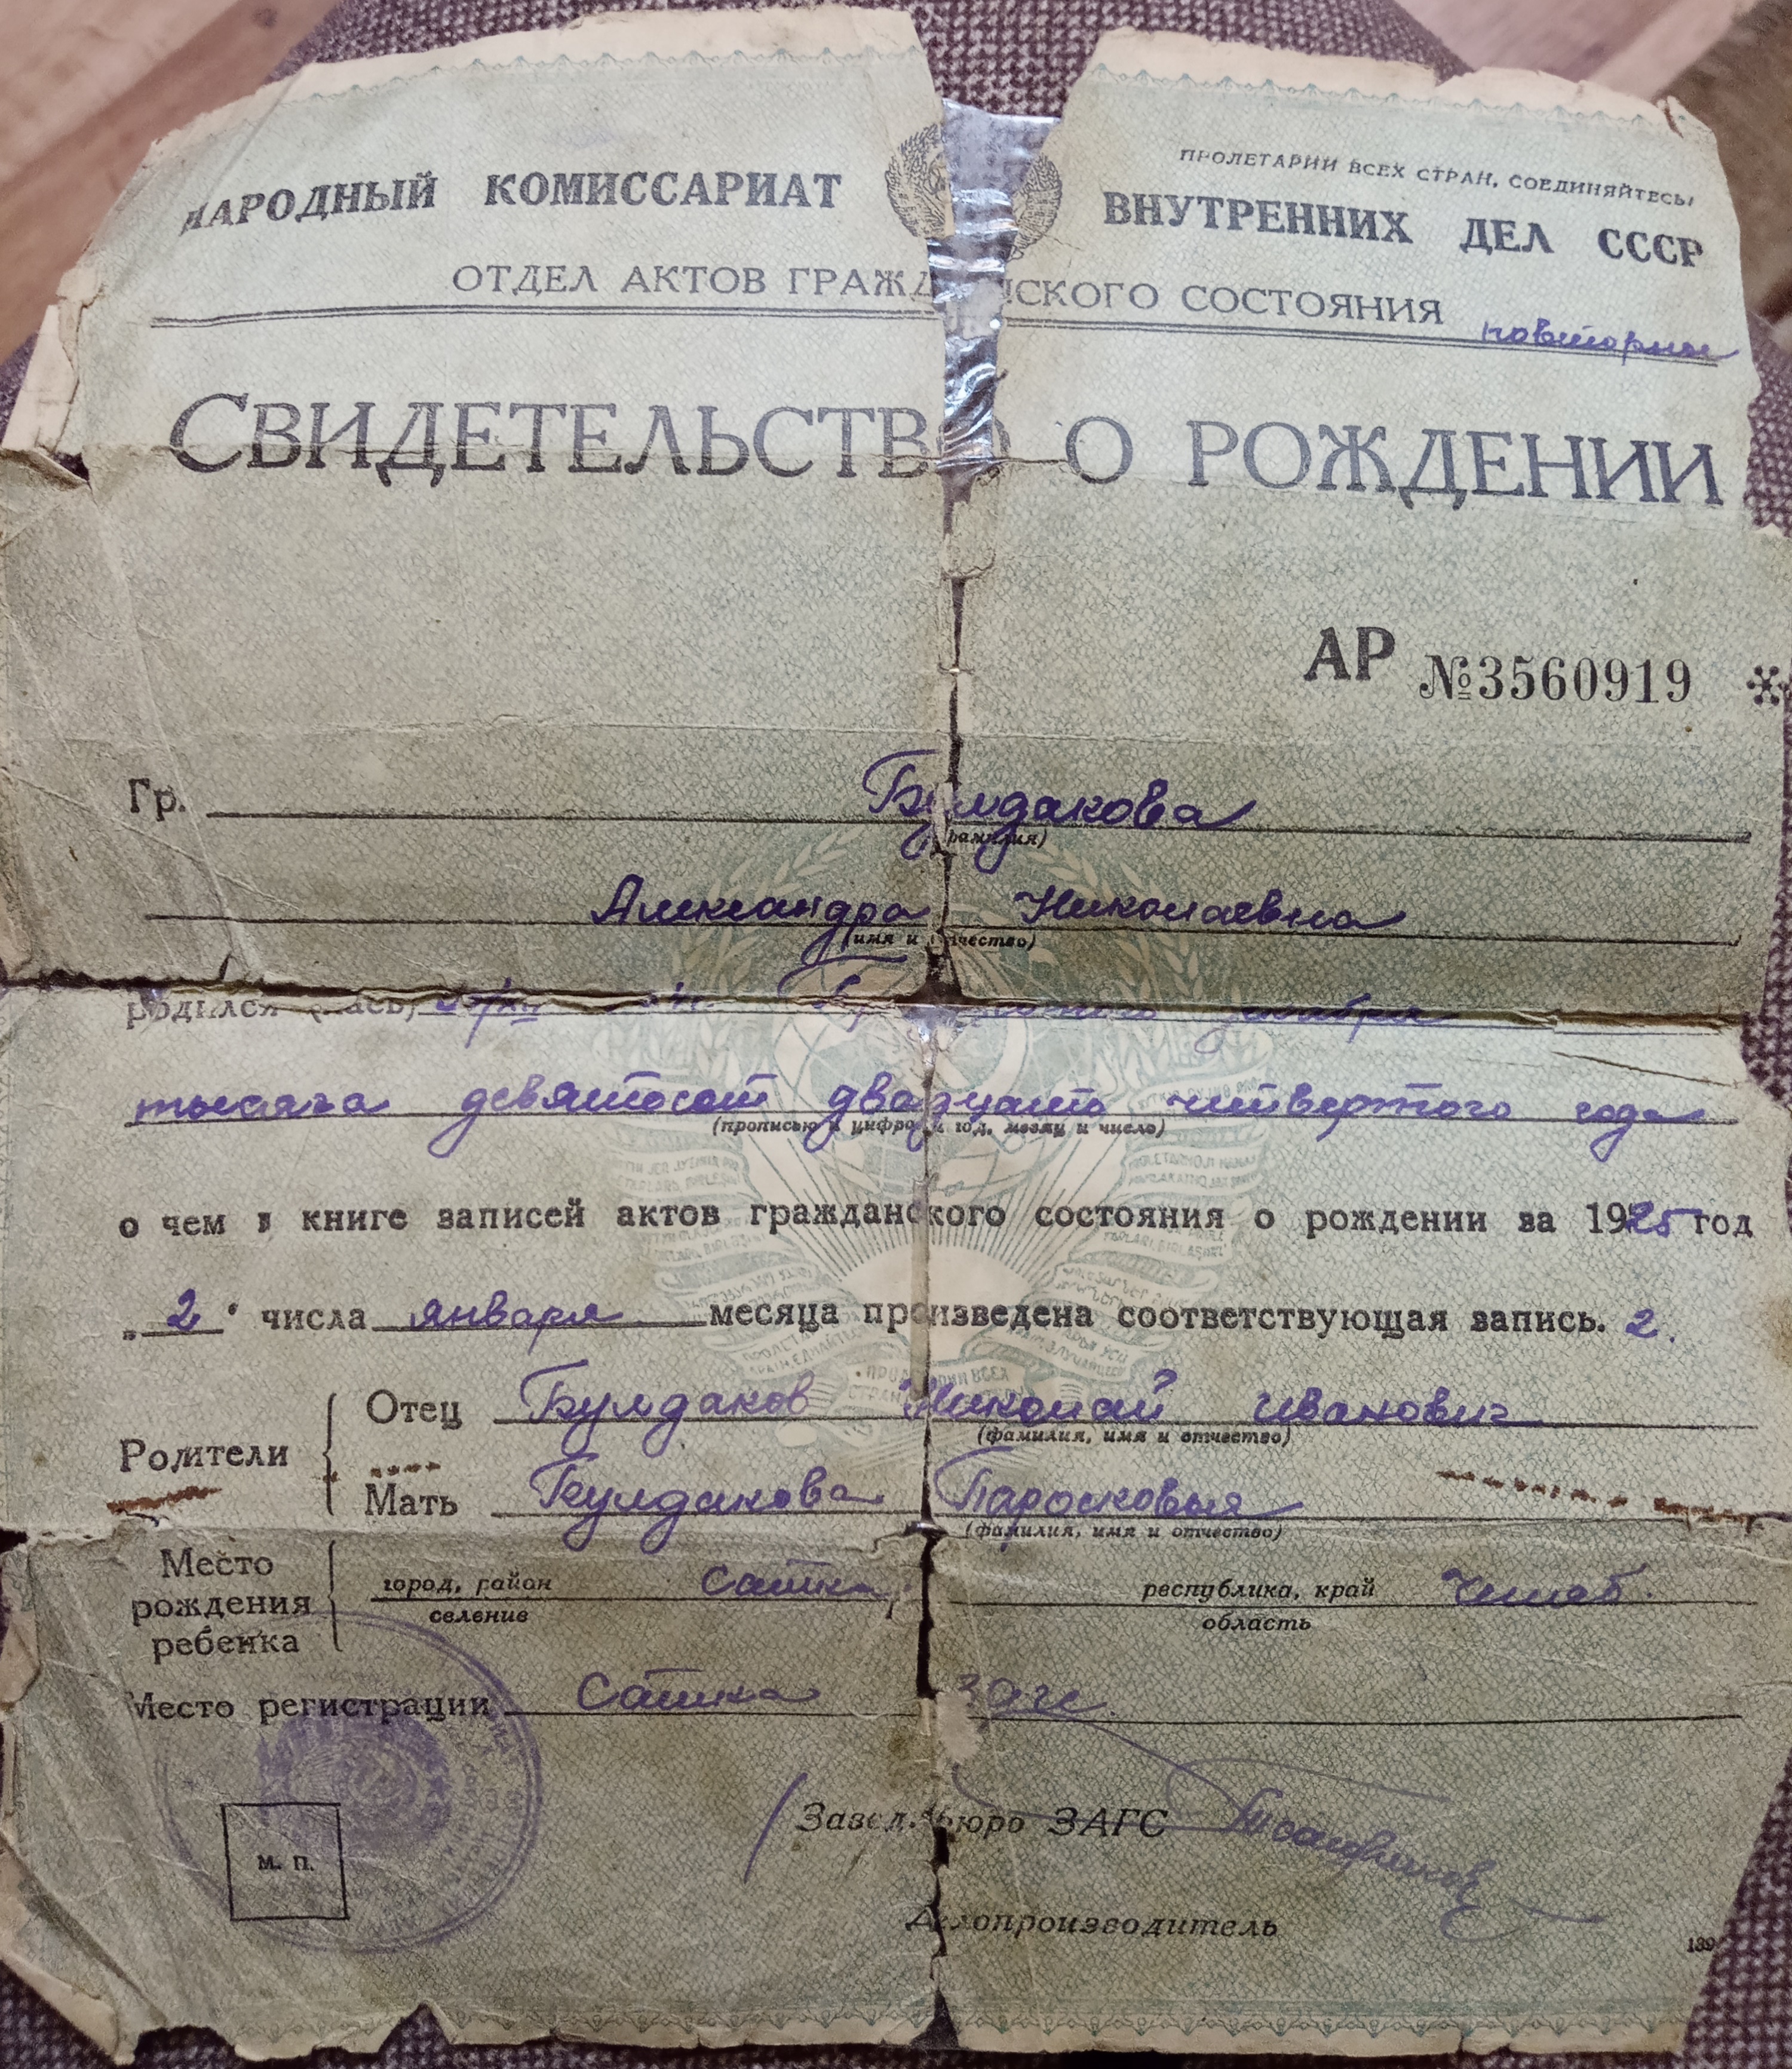 ПРОЛЕТАРИИ ВСЕХ СТРАН, СОЕДИНЯЙТЕСЬ!
НАРОДНЫЙ КОМИССАРИАТ ВНУТРЕННИХ ДЕЛ СССР
ОТДЕЛ АКТОВ ГРАЖДАНСКОГО СОСТОЯНИЯ
повторное
СВИДЕТЕЛЬСТВО О РОЖДЕНИИ
АР №3560919
Гр. Булдакова
(фамилия)
Александра Николаевна
(имя и отчество)
родился (лась) декабря
тысяча девятьсот двадцать четвертого года
(прописью и цифрами год, месяц и число)
о чем в книге записей актов гражданского состояния о рождении за 1925 год
„2" числа января месяца произведена соответствующая запись. 2.
Родители
Отец Булдаков Николай Иванович
(фамилия, имя и отчество)
Мать Булдакова Парасковья
(фамилия, имя и отчество)
Место рождения ребенка
город, район Сатка республика, край Челяб.
селение область
Место регистрации Сатка загс.
Завед. бюро ЗАГС
М. П.
Делопроизводитель